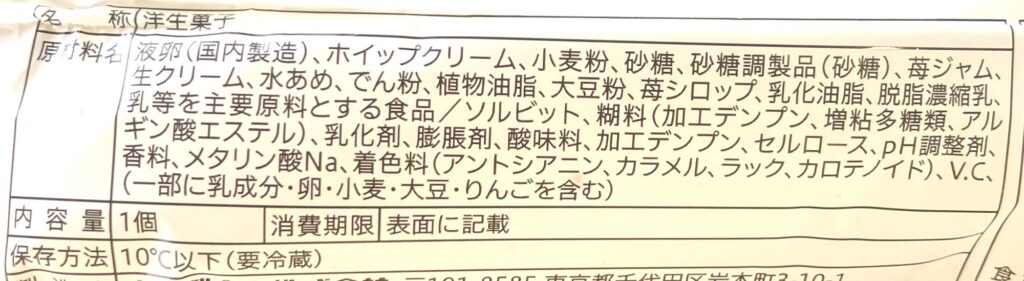 名 称 洋生菓子
原材料名 液卵(国内製造)、ホイップクリーム、小麦粉、砂糖、砂糖調製品(砂糖)、苺ジャム、
生クリーム、水あめ、でん粉、植物油脂、大豆粉、苺シロップ、乳化油脂、脱脂濃縮乳、
乳等を主要原料とする食品／ソルビット、糊料(加工デンプン、増粘多糖類、アル
ギン酸エステル)、乳化剤、膨脹剤、酸味料、加工デンプン、セルロース、pH調整剤、
香料、メタリン酸Na、着色料(アントシアニン、カラメル、ラック、カロテノイド)、V.C、
(一部に乳成分・卵・小麦・大豆・りんごを含む)
内容量 1個 消費期限 表面に記載
保存方法 10℃以下(要冷蔵)
〒101-8585 東京都千代田区岩本町3-10-1